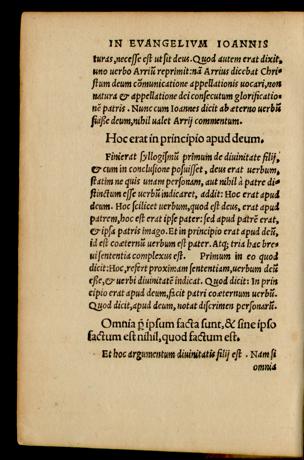 IN EVANGELIVM IOANNIS
turas, necesse est ut sit deus. Quod autem erat dixit,
uno uerbo Arriũ reprimit: nã Arrius dicebat Chri-
stum deum cõmunicatione appellationis uocari, non
natura & appellatione dei consecutum glorificatio-
nẽ patris. Nunc cum Ioannes dicit ab æterno uerbũ
fuisse deum, nihil ualet Arrij commentum.
Hoc erat in principio apud deum.
Finierat syllogismũ primum de diuinitate filij,
& cum in conclusione posuisset, deus erat uerbum,
statim ne quis unam personam, aut nihil à patre di-
stinctum esse uerbũ iudicaret, addit: Hoc erat apud
deum. Hoc scilicet uerbum, quod est deus, erat apud
patrem, hoc est erat ipse pater: sed apud patrẽ erat,
& ipsa patris imago. Et in principio erat apud deũ,
id est coæternũ uerbum est pater. Atq; tria hac bre-
ui sententia complexus est. Primum in eo quod
dicit: Hoc, refert proximam sententiam, uerbum deũ
esse, & uerbi diuinitatẽ indicat. Quod dicit: In prin
cipio erat apud deum, facit patri coæternum uerbũ.
Quod dicit, apud deum, notat discrimen personarũ.
Omnia ꝑ ipsum facta sunt, & sine ipso
factum est nihil, quod factum est.
Et hoc argumentum diuinitatis filij est. Nam si
omnia